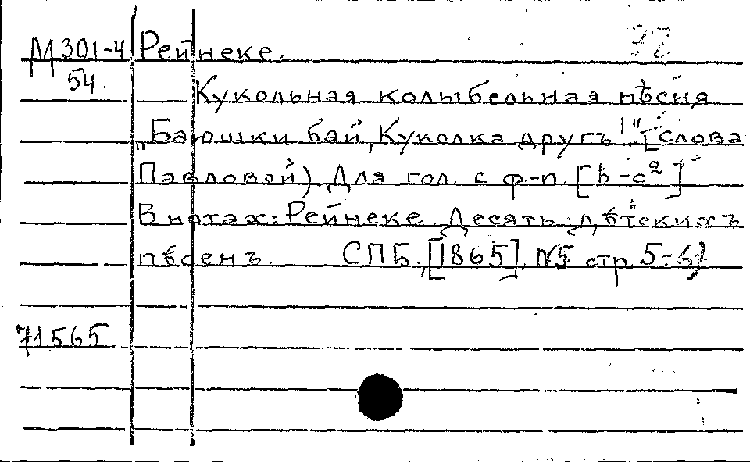 М 301-4 Рейнеке.
54
Кукольная колыбельная пѣсня
"Баюшки бай, Куколка другъ!" [слова
Павловой) Для гол. с ф-п. [h-c²]
В нотах: Рейнеке. Десять дѣтскихъ
пѣсенъ. СПБ, [1865], №5 стр. 5-6)
71565